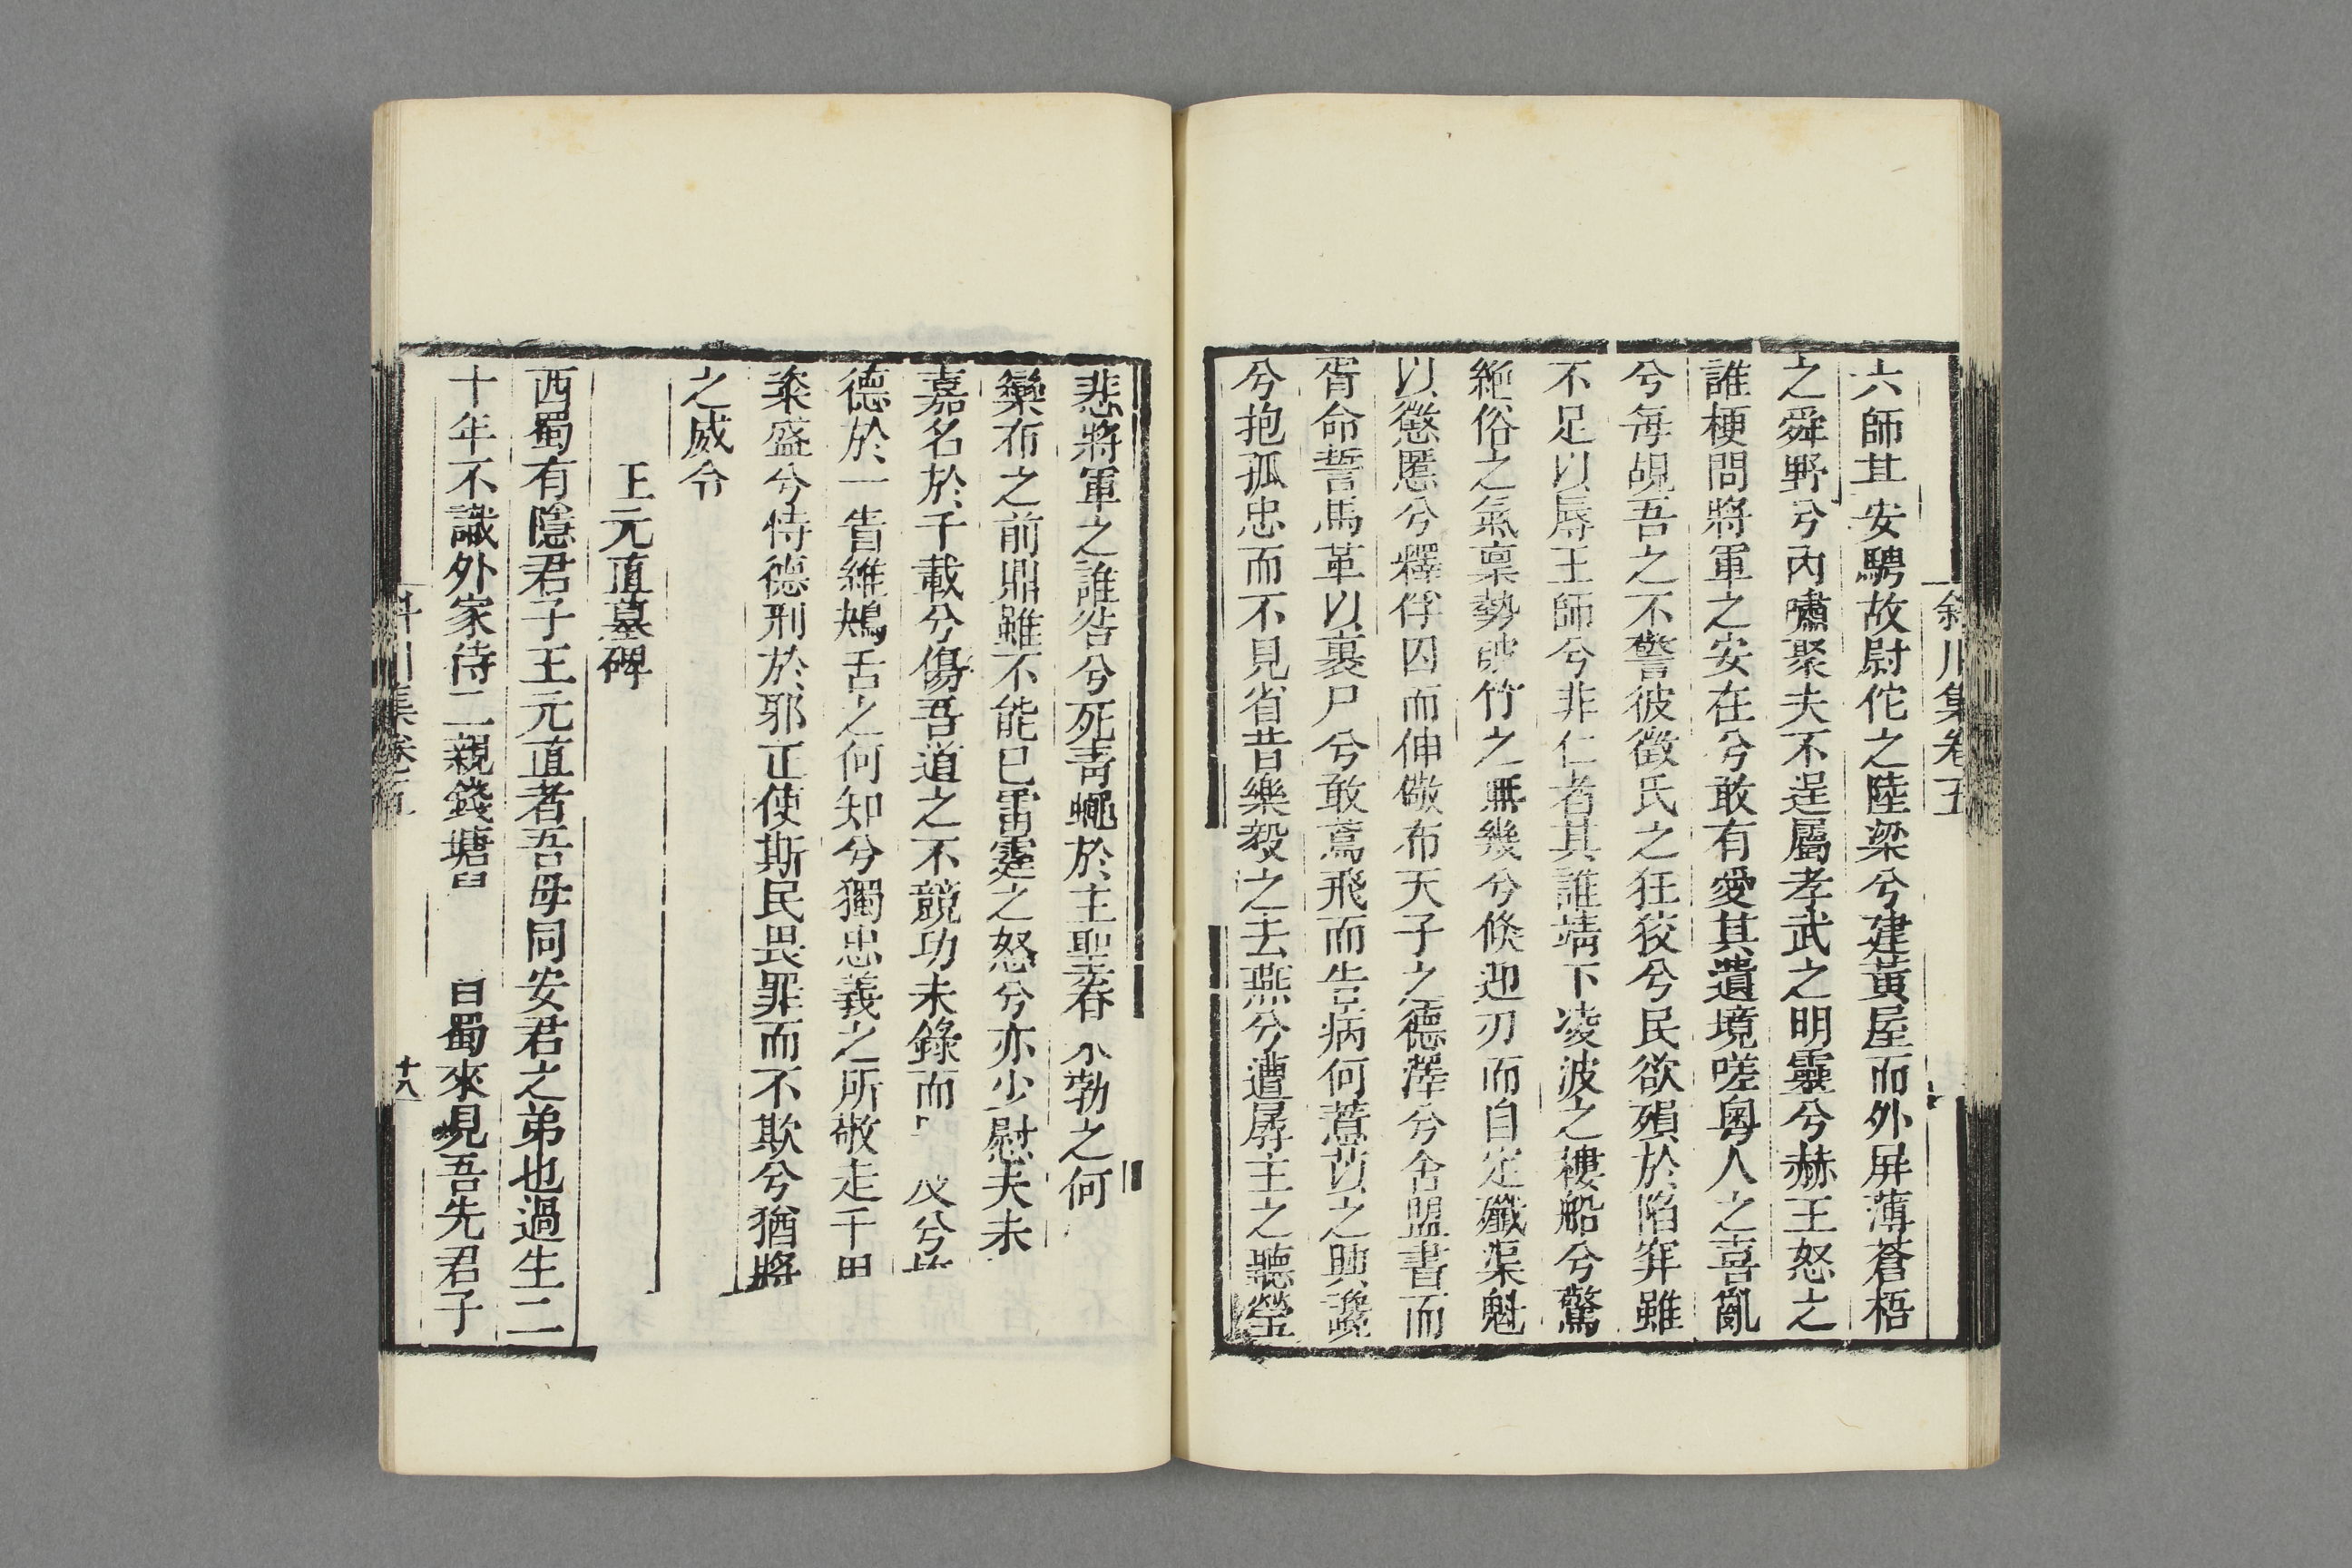 斜川集卷五
六師其安騁故尉佗之陸梁兮建黃屋而外屏薄蒼梧
之舜野兮內嘯聚夫不逞屬孝武之明靈兮赫王怒之
誰梗問將軍之安在兮敢有愛其遺境嗟粵人之喜亂
兮每覘吾之不警彼徵氏之狂狡兮民欲殞於陷穽雖
不足以辱王師兮非仁者其誰靖下凌波之樓船兮驚
絕俗之氣稟勢破竹之無幾兮倏迎刃而自定殲渠魁
以懲慝兮釋俘囚而伸儆布天子之德澤兮舍盟書而
胥命誓馬革以裹尸兮敢鳶飛而告病何薏苡之興讒
兮抱孤忠而不見省昔樂毅之去燕兮遭孱主之聽瑩
悲將軍之誰咎兮死青蠅於主聖春 勃之何
欒布之前鼎雖不能已雷霆之怒兮亦少慰夫未
嘉名於千載兮傷吾道之不競功未錄而 兮
德於一眚維鴂舌之何知兮獨忠義之所敬走千
粢盛兮恃德刑於邪正使斯民畏罪而不欺兮猶將
之威令
王元直墓碑
西蜀有隱君子王元直者吾母同安君之弟也過生二
十年不識外家侍二親錢塘 自蜀來見吾先君子
斜川集卷五
十八